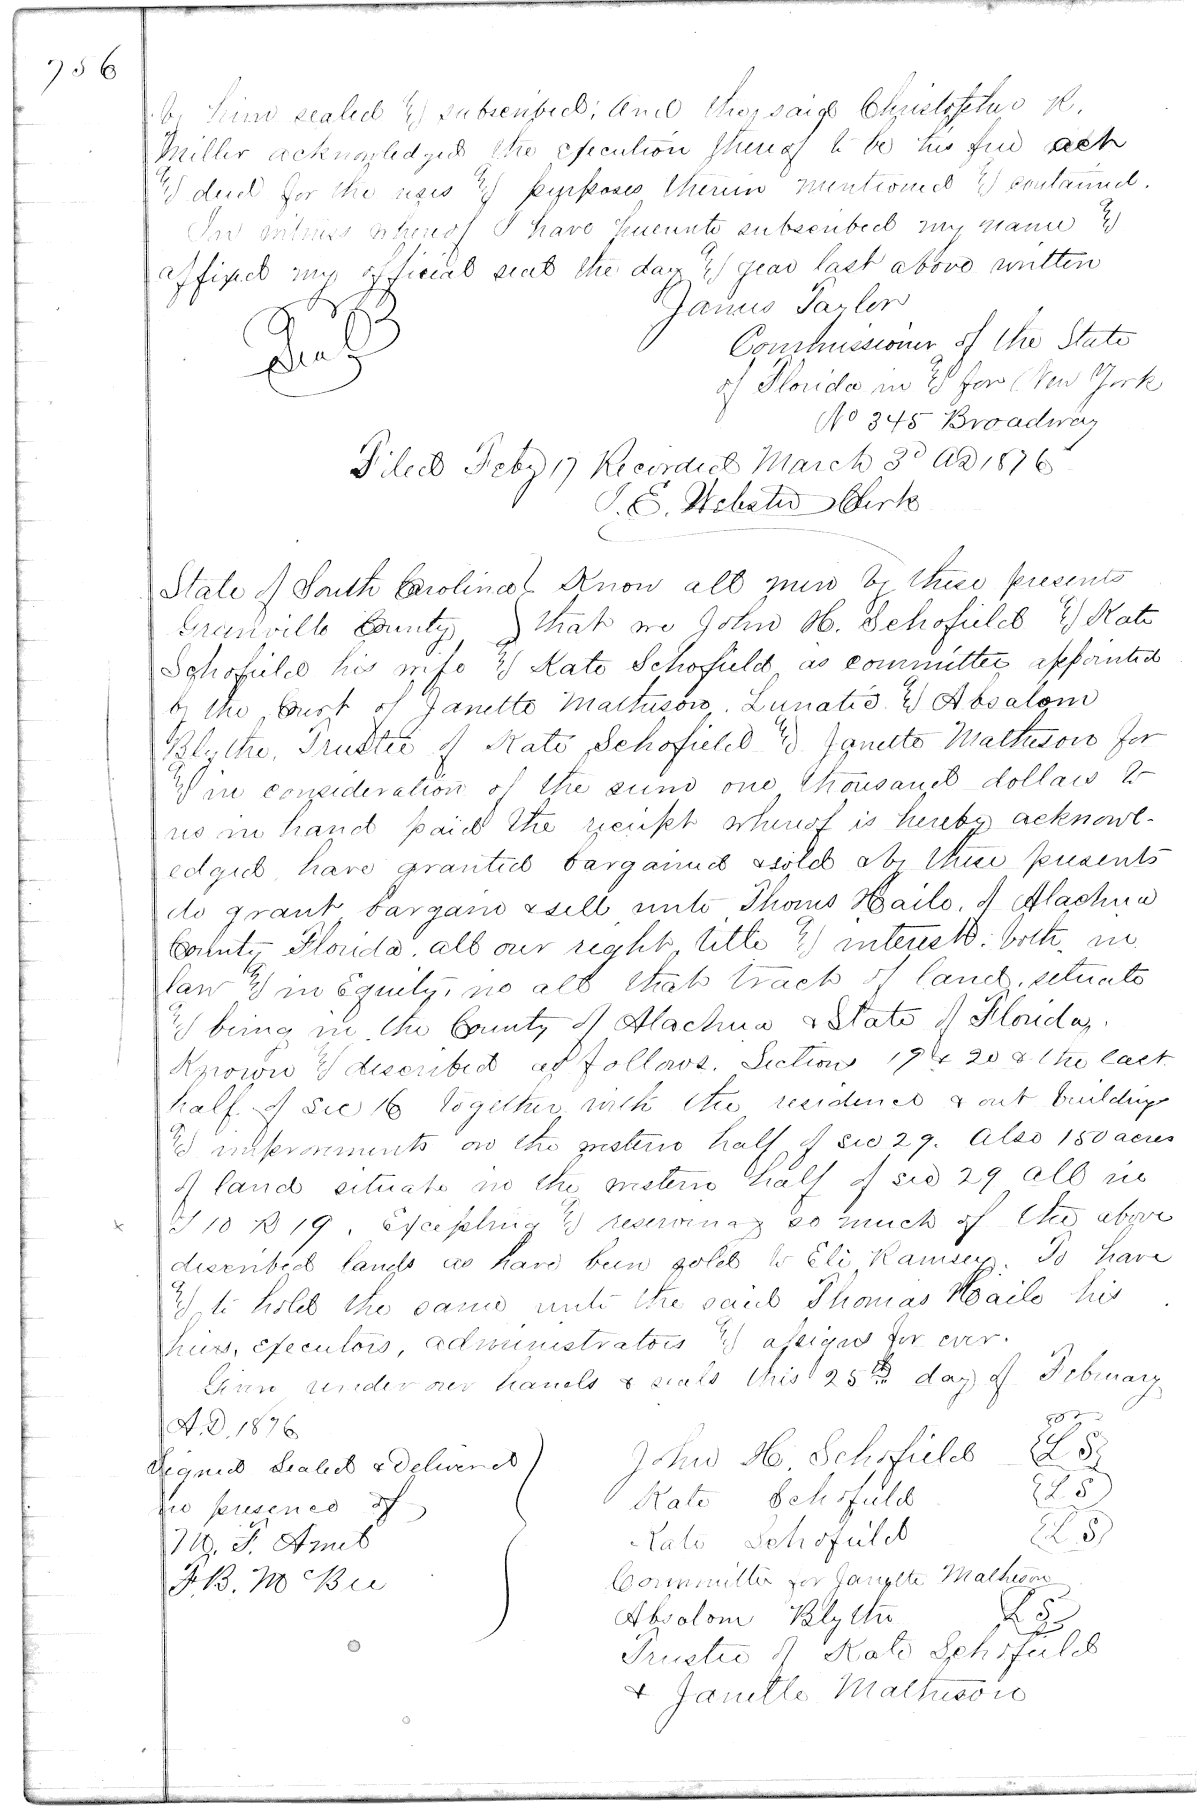 756
by him sealed & subscribed; And the said Christopher R.
Miller acknowledged the execution thereof to be his free act
& deed for the uses & purposes therein mentioned & contained.
In witness whereof I have hereunto subscribed my name &
affixed my official seal the day & year last above written
Seal
James Taylor
Commissioner of the State
of Florida in & for New York
No 345 Broadway
Filed Feby 17 Recorded March 3d AD 1876
J. E. Webster Clerk
State of South Carolina } Know all men by these presents
Greenville County } that we John H. Schofield & Kate
Schofield his wife & Kate Schofield as committee appointed
by the Court of Janette Matheson, Lunatic & Absalom
Blythe, Trustee of Kate Schofield & Janette Matheson for
& in consideration of the sum one thousand dollars to
us in hand paid the receipt whereof is hereby acknowl-
edged, have granted bargained & sold & by these presents
do grant bargain & sell unto Thoms Haile, of Alachua
County Florida, all our right, title & interest, both in
law & in Equity, in all that track of land, situate
& being in the County of Alachua & State of Florida,
Known & described as follows. Section 19 & 20 & the east
half of Sec 16 together with the residence & out buildings
& improvments on the western half of sec 29. Also 150 acres
of land situate in the western half of sec 29 all in
T 10 R 19, Excepting & reserving so much of the above
described lands as have been sold to Eli Ramsey. To have
& to hold the same unto the said Thomas Haile his
heirs, executors, administrators & assigns for ever.
Given under our hands & seals this 25th day of February
A.D. 1876
Signed Sealed & Delivered
in presence of
F. B. McBee
John H. Schofield {LS}
Kate Schofield {LS}
Kate Schofield {LS}
Committee for Janette Matheson
Absalom Blythe LS
Trustee of Kate Schofield
& Janette Matheson